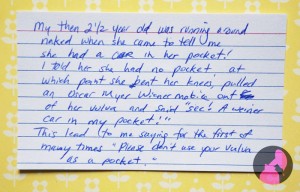 My then 2 1/2 year old was running around
naked when she came to tell me
she had a car in her pocket!
I told her she had no pocket, at
which point she bent her knees, pulled
an Oscar Mayer Wienermobile out
of her vulva and said "see! A weiner
car in my pocket!"
This lead to me saying for the first of
many times "Please don't use your vulva
as a pocket."